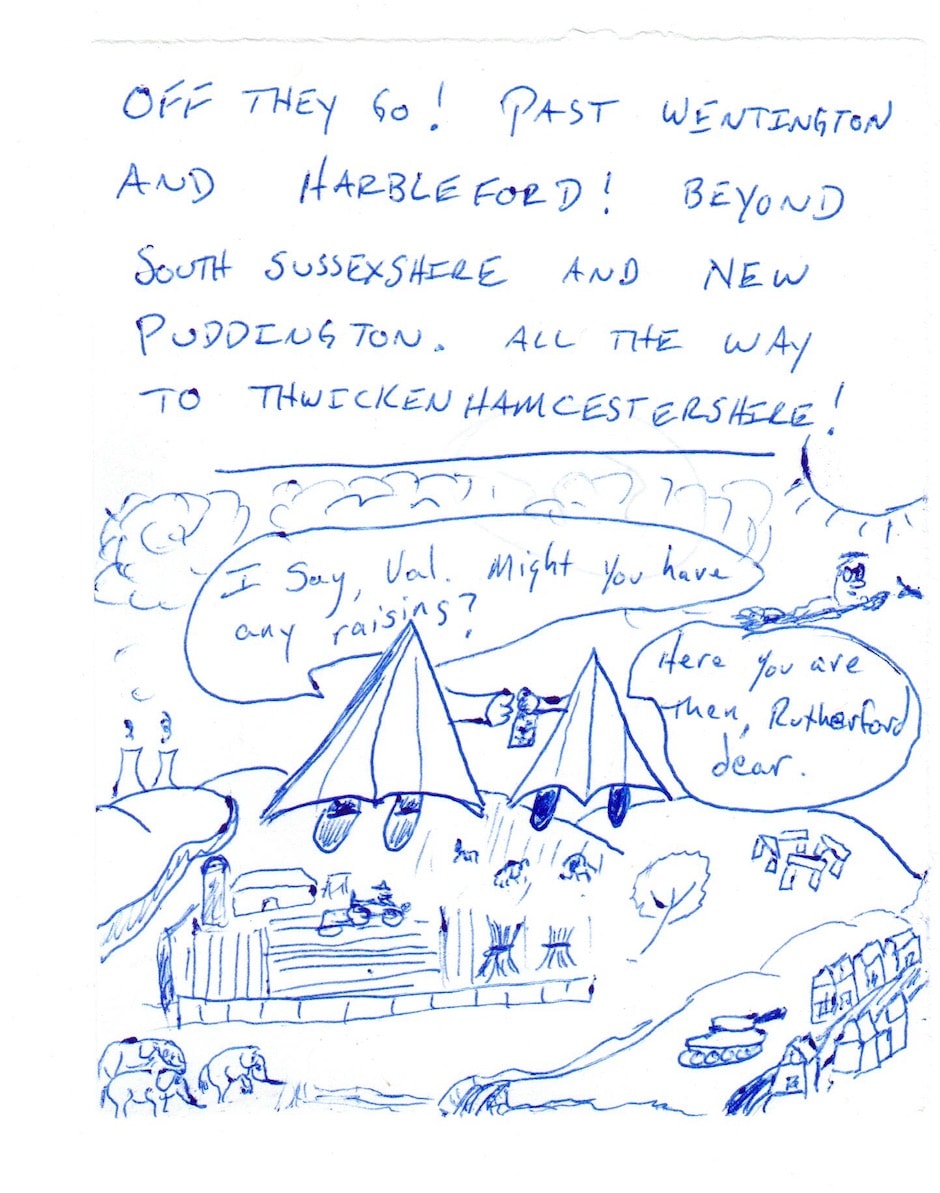 OFF THEY GO! PAST WENTINGTON
AND HARBLEFORD! BEYOND
SOUTH SUSSEXSHIRE AND NEW
PUDDINGTON. ALL THE WAY
TO THWICKENHAMCESTERSHIRE!
I Say, Val. Might you have
any raisins?
Here you are
then, Rutherford
dear.